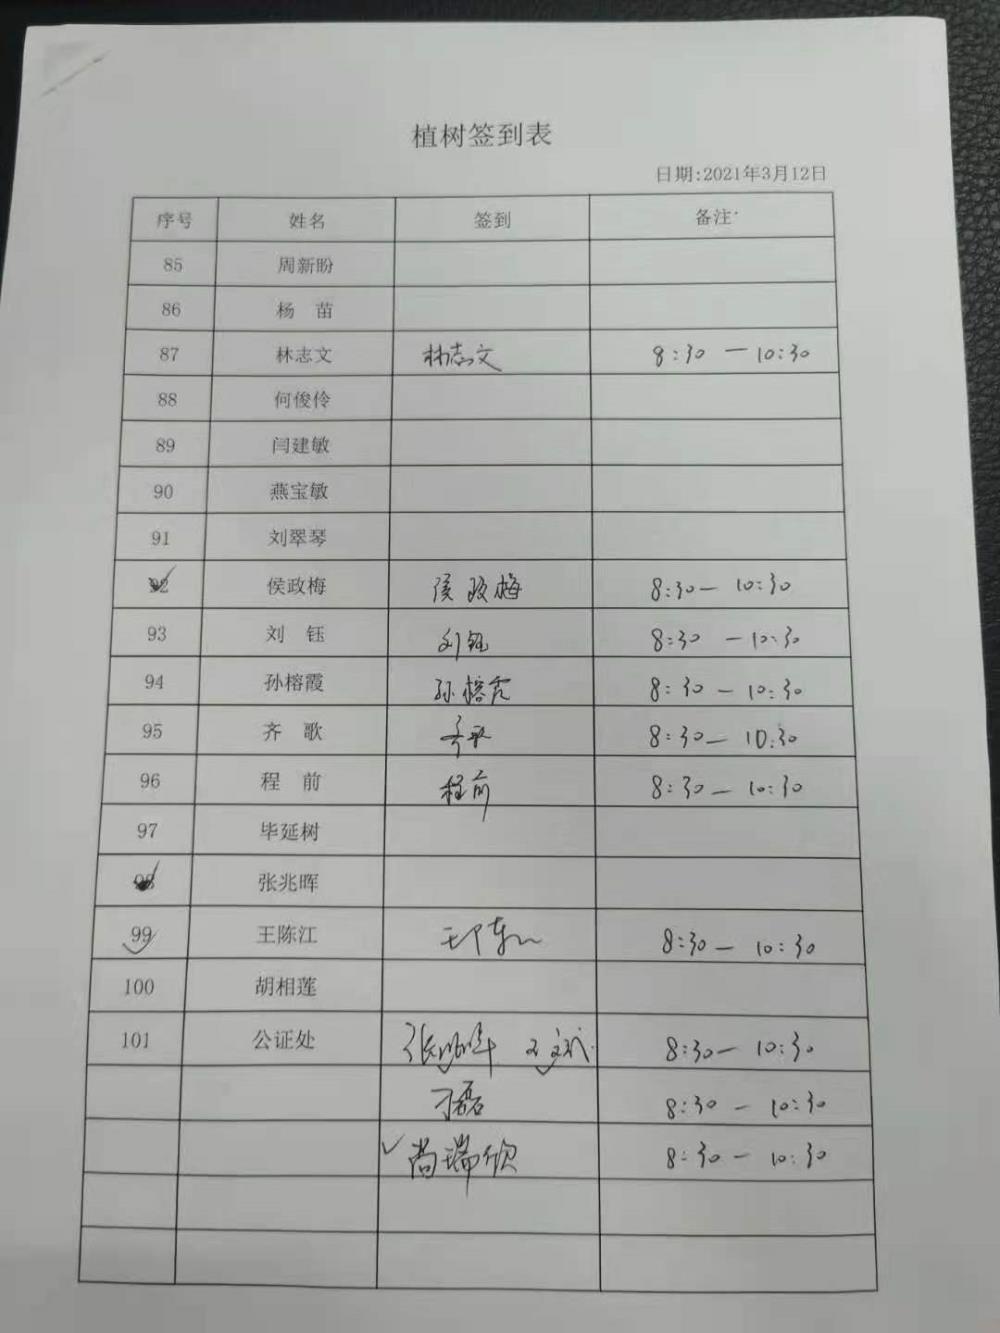 植树签到表
日期:2021年3月12日
序号 姓名 签到 备注
85 周新盼
86 杨 苗
87 林志文 林志文 8:30 — 10:30
88 何俊伶
89 闫建敏
90 燕宝敏
91 刘翠琴
92 侯政梅 侯政梅 8:30— 10:30
93 刘 钰 刘钰 8:30 —10:30
94 孙榕霞 孙榕霞 8:30 — 10:30
95 齐 歌 8:30— 10:30
96 程 前 程前 8:30 — 10:30
97 毕延树
98 张兆晖
99 王陈江 8:30 — 10:30
100 胡相莲
101 公证处 8:30— 10:30
丁磊 8:30 — 10:30
尚瑞欣 8:30 — 10:30